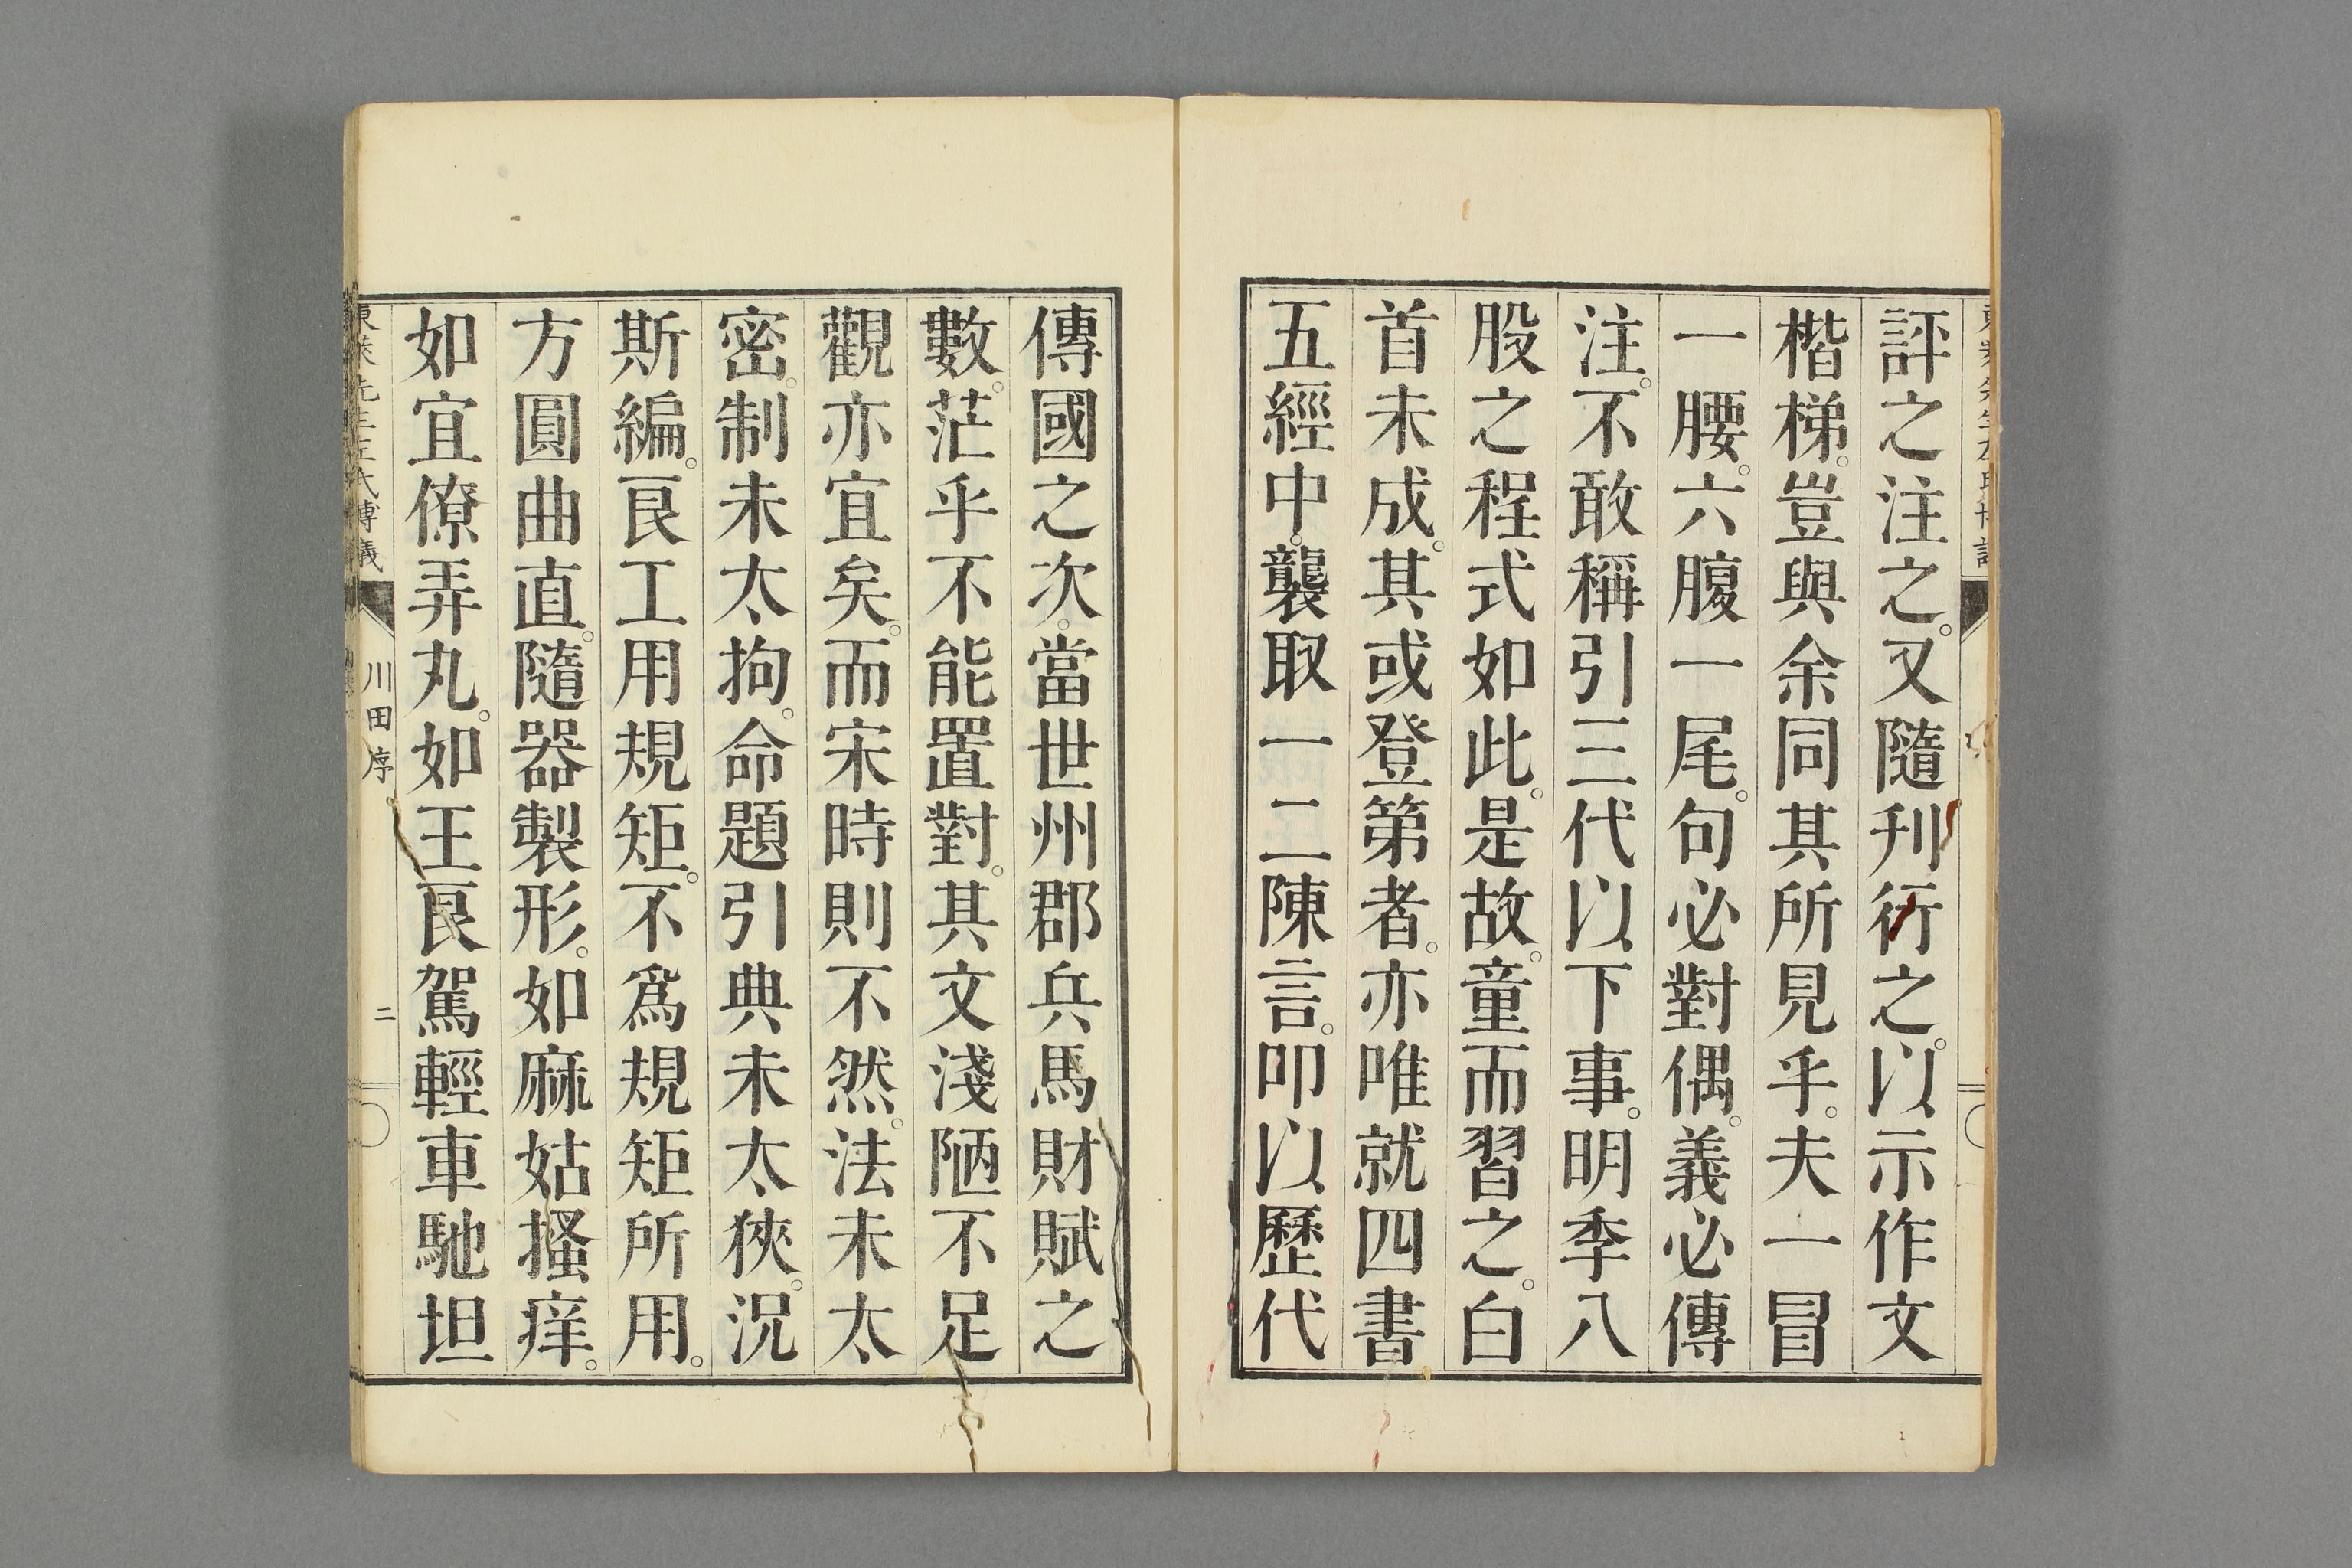 評之注之。又隨刋行之。以示作文
楷梯。豈與余同其所見乎。夫一冒
一腰。六腹一尾。句必對偶。義必傳
注。不敢稱引三代以下事。明季八
股之程式如此。是故。童而習之。白
首未成。其或登第者。亦唯就四書
五經中。襲取一二陳言。叩以歷代
傳國之次。當世州郡兵馬財賦之
數。茫乎不能置對。其文淺陋不足
觀亦宜矣。而宋時則不然。法未太
密。制未太拘。命題引典未太狹。況
斯編。良工用規矩。不爲規矩所用。
方圓曲直。隨器製形。如麻姑搔痒。
如宜僚弄丸。如王良駕輕車馳坦
東萊先生左氏博議
川田序
二